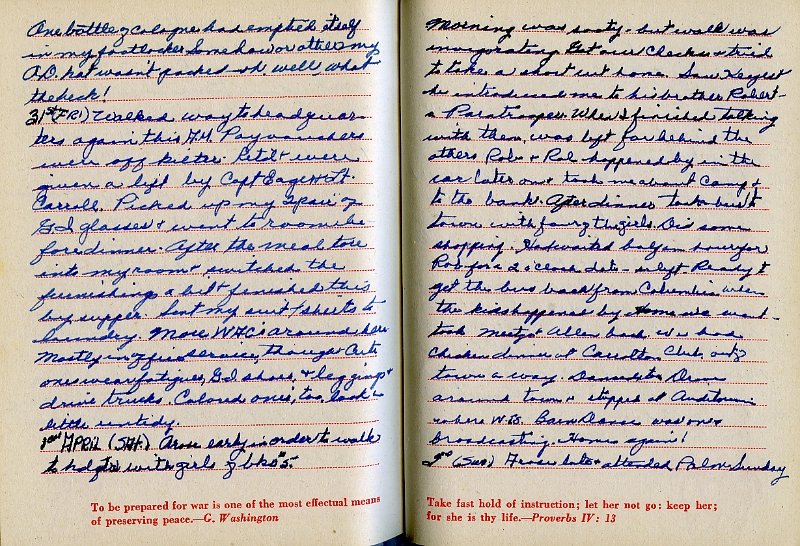 One bottle of cologne had emptied itself
in my footlocker. Somehow or other my
O.D. hat wasn't packed - oh, well, what
the heck!
31st (FRI) Walked way to headquar-
ters again this A.M. Pay vouchers
were off kilter. were
given a lift by Capt + Lt.
Carroll. Picked up my 2 pair of
G.I. glasses + went to room be-
fore dinner. After the meal tore
into my room + switched the
furnishings a bit + finished this
by supper. Sent my suit + shirts to
laundry. More WACs around here
Mostly in office service, though. Certain
ones wear fatigues, G.I. shoes, + leggings +
drive trucks. Colored ones, too, look a
little untidy.
1st APRIL (SAT) Arose early in order to walk
to hdqtrs with girls of bks 5.
To be prepared for war is one of the most effectual means
of preserving peace.—G. Washington
Morning was sooty - but walk was
invigorating. Got our checks + tried
to take a short cut home. Saw +
he introduced me to his brother Robert -
a Paratrooper. When I finished talking
with them, was left far behind the
others. Rob + happened by in the
car later on + took me about camp +
to the bank. After dinner took bus to
town with four of the girls. Did some
shopping. Had waited half an hour for
Rob for a 2 o'clock date - so left. Ready to
get the bus back from Columbia when
the kids happened by. Home we went -
took Meety + Allen back. We had
Chicken dinner at Carrollton Club, out of
town a way. Drove
around town + stopped at Auditorium
where W.B. Barn Dance was on +
broadcasting. Home again!
2nd (Sun) Arose late + attended Palm Sunday
Take fast hold of instruction; let her not go: keep her;
for she is thy life.—Proverbs IV: 13